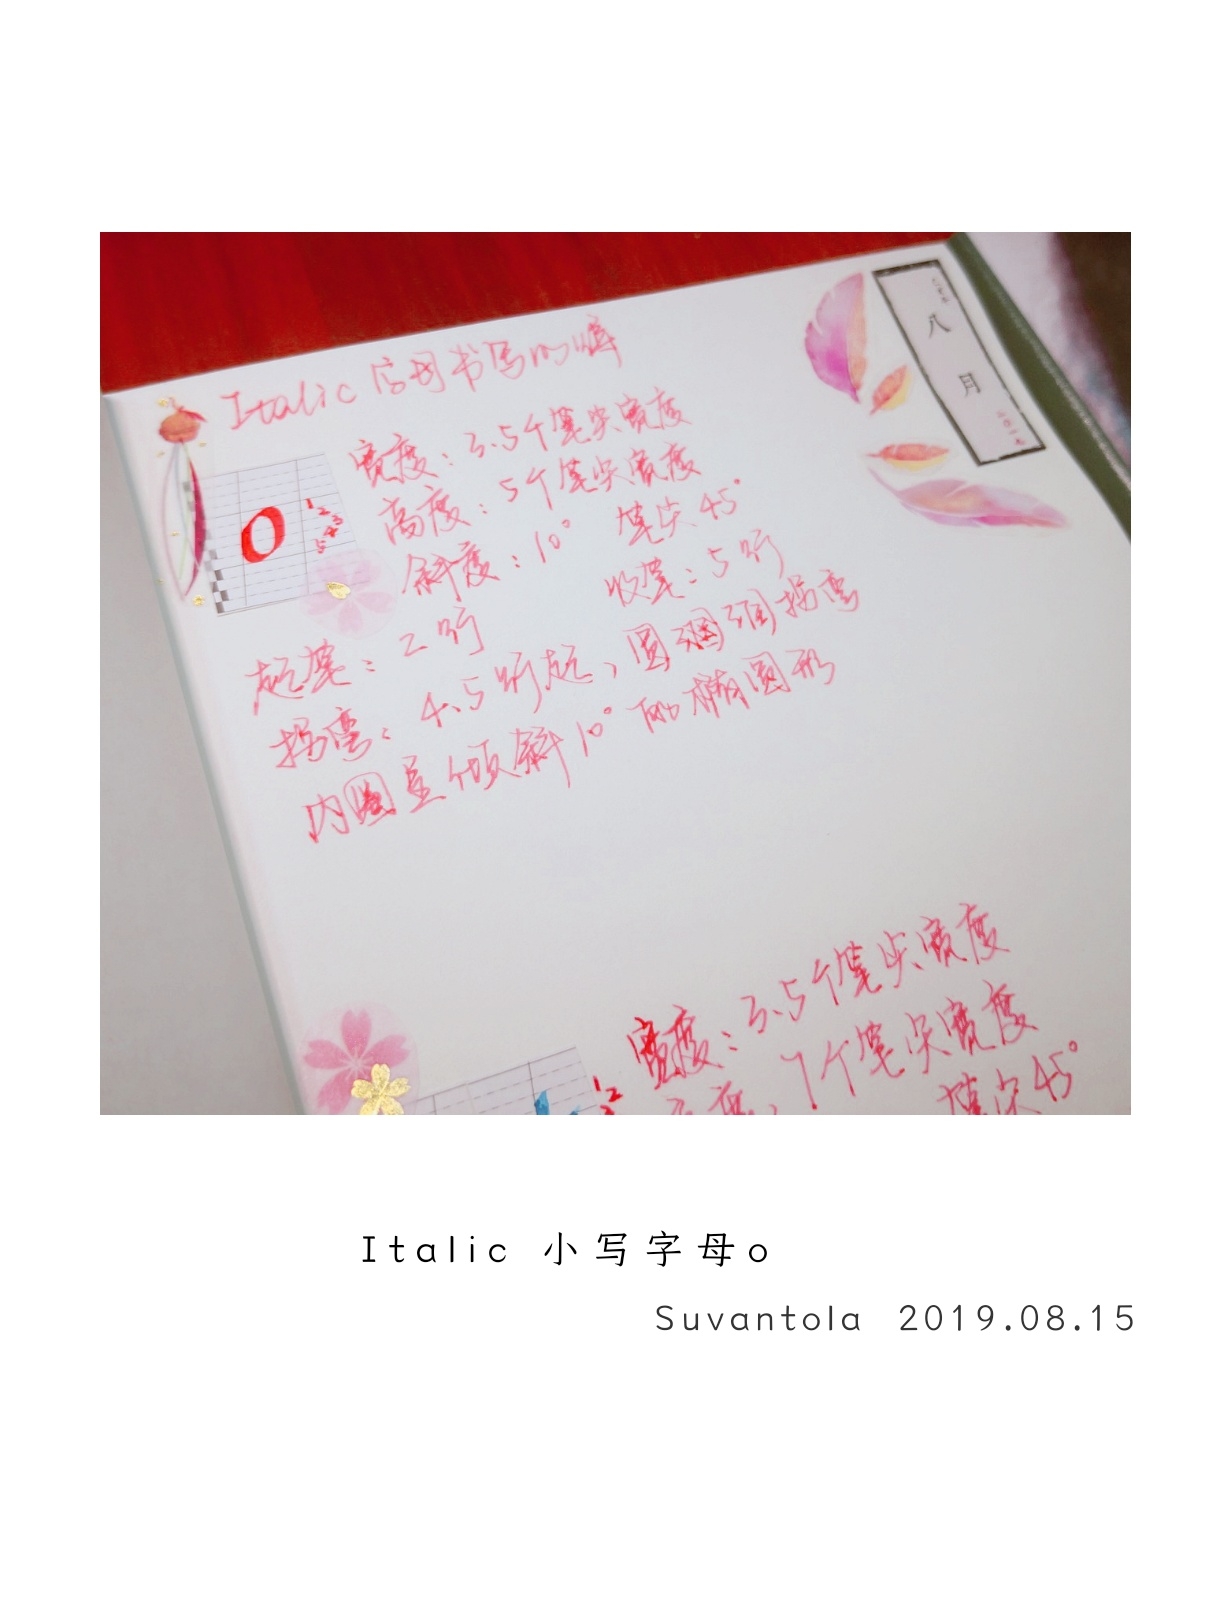 Italic 字母书写的
八月
宽度：3.5个笔尖宽度
高度：5个笔尖宽度
斜度：10° 笔尖45°
起笔：2 8行 收笔：5 8行
拐弯：4.5 8行起，圆润拐弯
内圈呈倾斜10°的椭圆形
O
1
2
3
4
5
宽度：3.5个笔尖宽度
高度：7个笔尖宽度
笔尖45°
1
2
Italic 小写字母o
Suvantola 2019.08.15